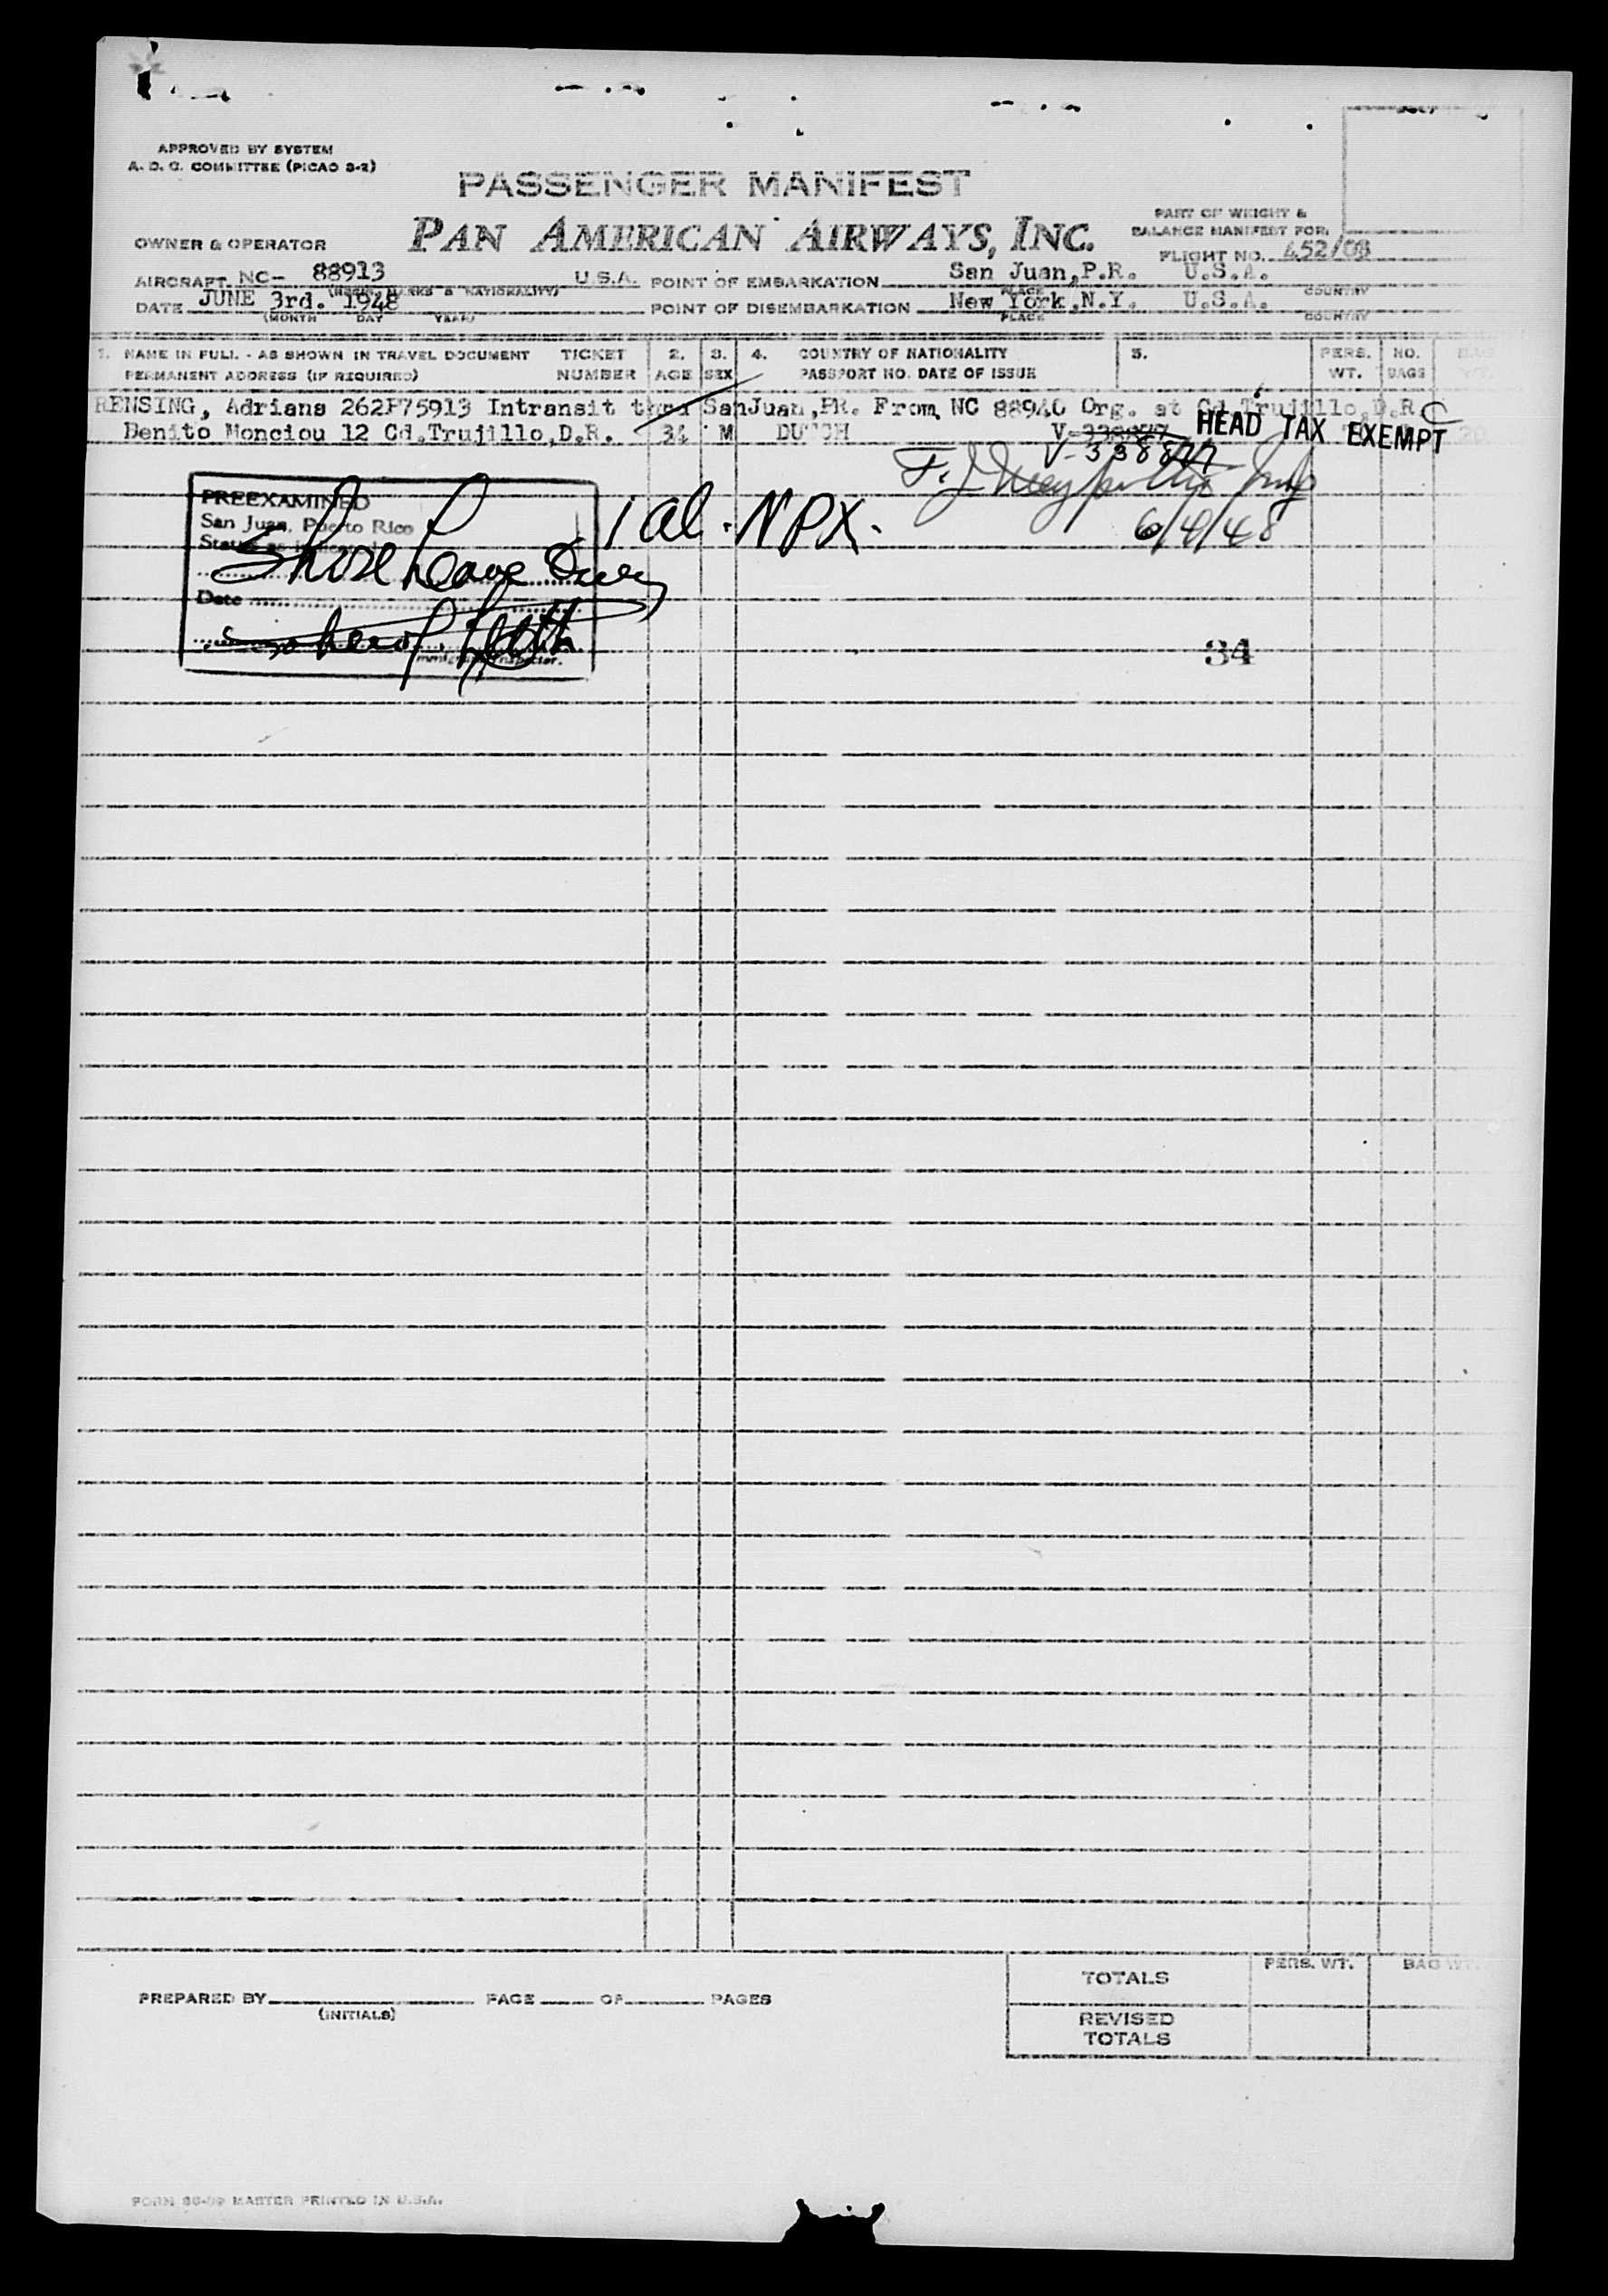 APPROVED BY SYSTEM
A. D. C. COMMITTEE (PICAO S-2)
PASSENGER MANIFEST
PAN AMERICAN AIRWAYS, INC.
PART OF WEIGHT &
BALANCE MANIFEST FOR:
OWNER & OPERATOR
FLIGHT NO. 452/03
AIRCRAFT NC- 88913 U.S.A. POINT OF EMBARKATION San Juan,P.R. U.S.A.
PLACE COUNTRY
DATE JUNE 3rd. 1948 POINT OF DISEMBARKATION New York,N.Y. U.S.A.
(MONTH DAY YEAR) PLACE COUNTRY
1. NAME IN FULL - AS SHOWN IN TRAVEL DOCUMENT TICKET 2. 3. 4. COUNTRY OF NATIONALITY 5. PERS. NO.
PERMANENT ADDRESS (IF REQUIRED) NUMBER AGE SEX PASSPORT NO. DATE OF ISSUE WT. BAGS
RENSING, Adrians 262P75913 Intransit thru SanJuan,PR. From NC 88940 Org. at Cd.Trujillo,D.R.
Benito Monciou 12 Cd.Trujillo,D.R. 34 M DUTCH
HEAD TAX EXEMPT
V-338877
PREEXAMINED
San Juan, Puerto Rico
Status as indicated
1 al. NPX.
6/4/48
Shore Leave
Date
Immigrant Inspector.
34
TOTALS PERS. WT. BAG WT.
PREPARED BY PAGE OF PAGES
(INITIALS)
REVISED
TOTALS
MASTER PRINTED IN U.S.A.